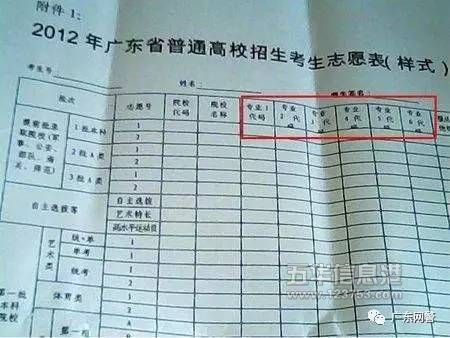 附件1:
2012年广东省普通高校招生考生志愿表(样式)
考生号 姓名:
批次 志愿号 院校代码 院校名称 专业1代码 专业2代码 专业3代码 专业4代码 专业5代码 专业6代码
提前批录取院校(军事、公安、部队、南关、师范)
1批本科 1
2
2批A类 1
2
3批A类 1
2
自主选拔等 自主选拔
艺术特长
高水平运动员
艺术类 统·单 1
单考 1
统考 1
2
第一批本科院校 体育类 1
2
第一组 1
五华信息港
www.123753.com
广东网警